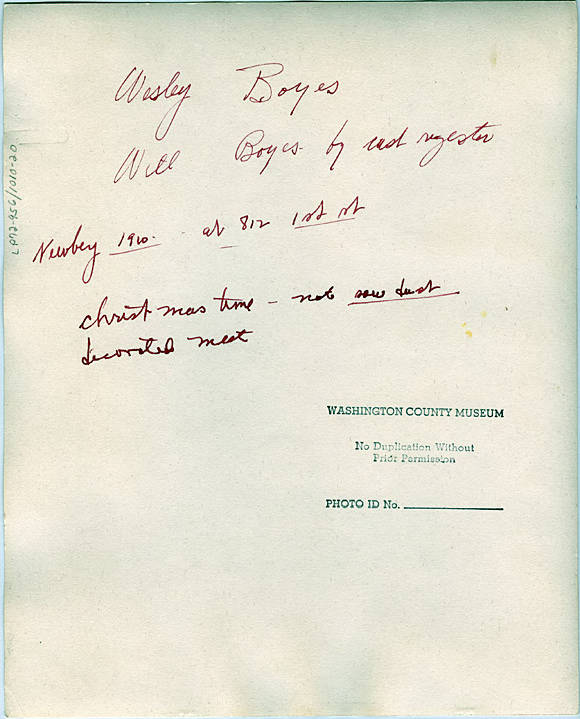 Wesley Boyes
Will Boyes by cash register
Newberg 1910 - at 812 1st st
christmas time - note saw dust
decorated meat
LP72-956/1010-20
WASHINGTON COUNTY MUSEUM
No Duplication Without
Prior Permission
PHOTO ID No.